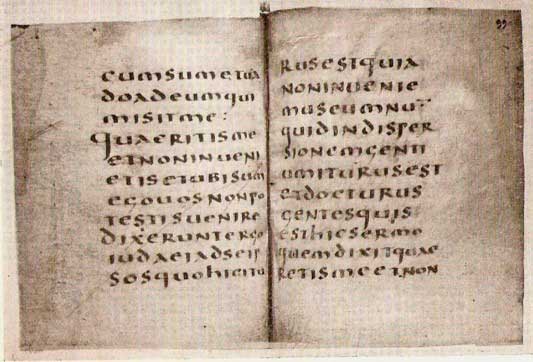 cumsumetua
doadeumqui
misitme:
quaeritisme
etnoninueni
etisetubisum
egouosnonpo
testisuenire
dixeruntergo
iudaeiadseip
sosquohicitu
rusestquia
noninuenie
museumnu̅
quidindisper
sionemgenti
umiturusest
etdocturus
gentesquis
esthicsermo
quemdixitquae
retismeetnon